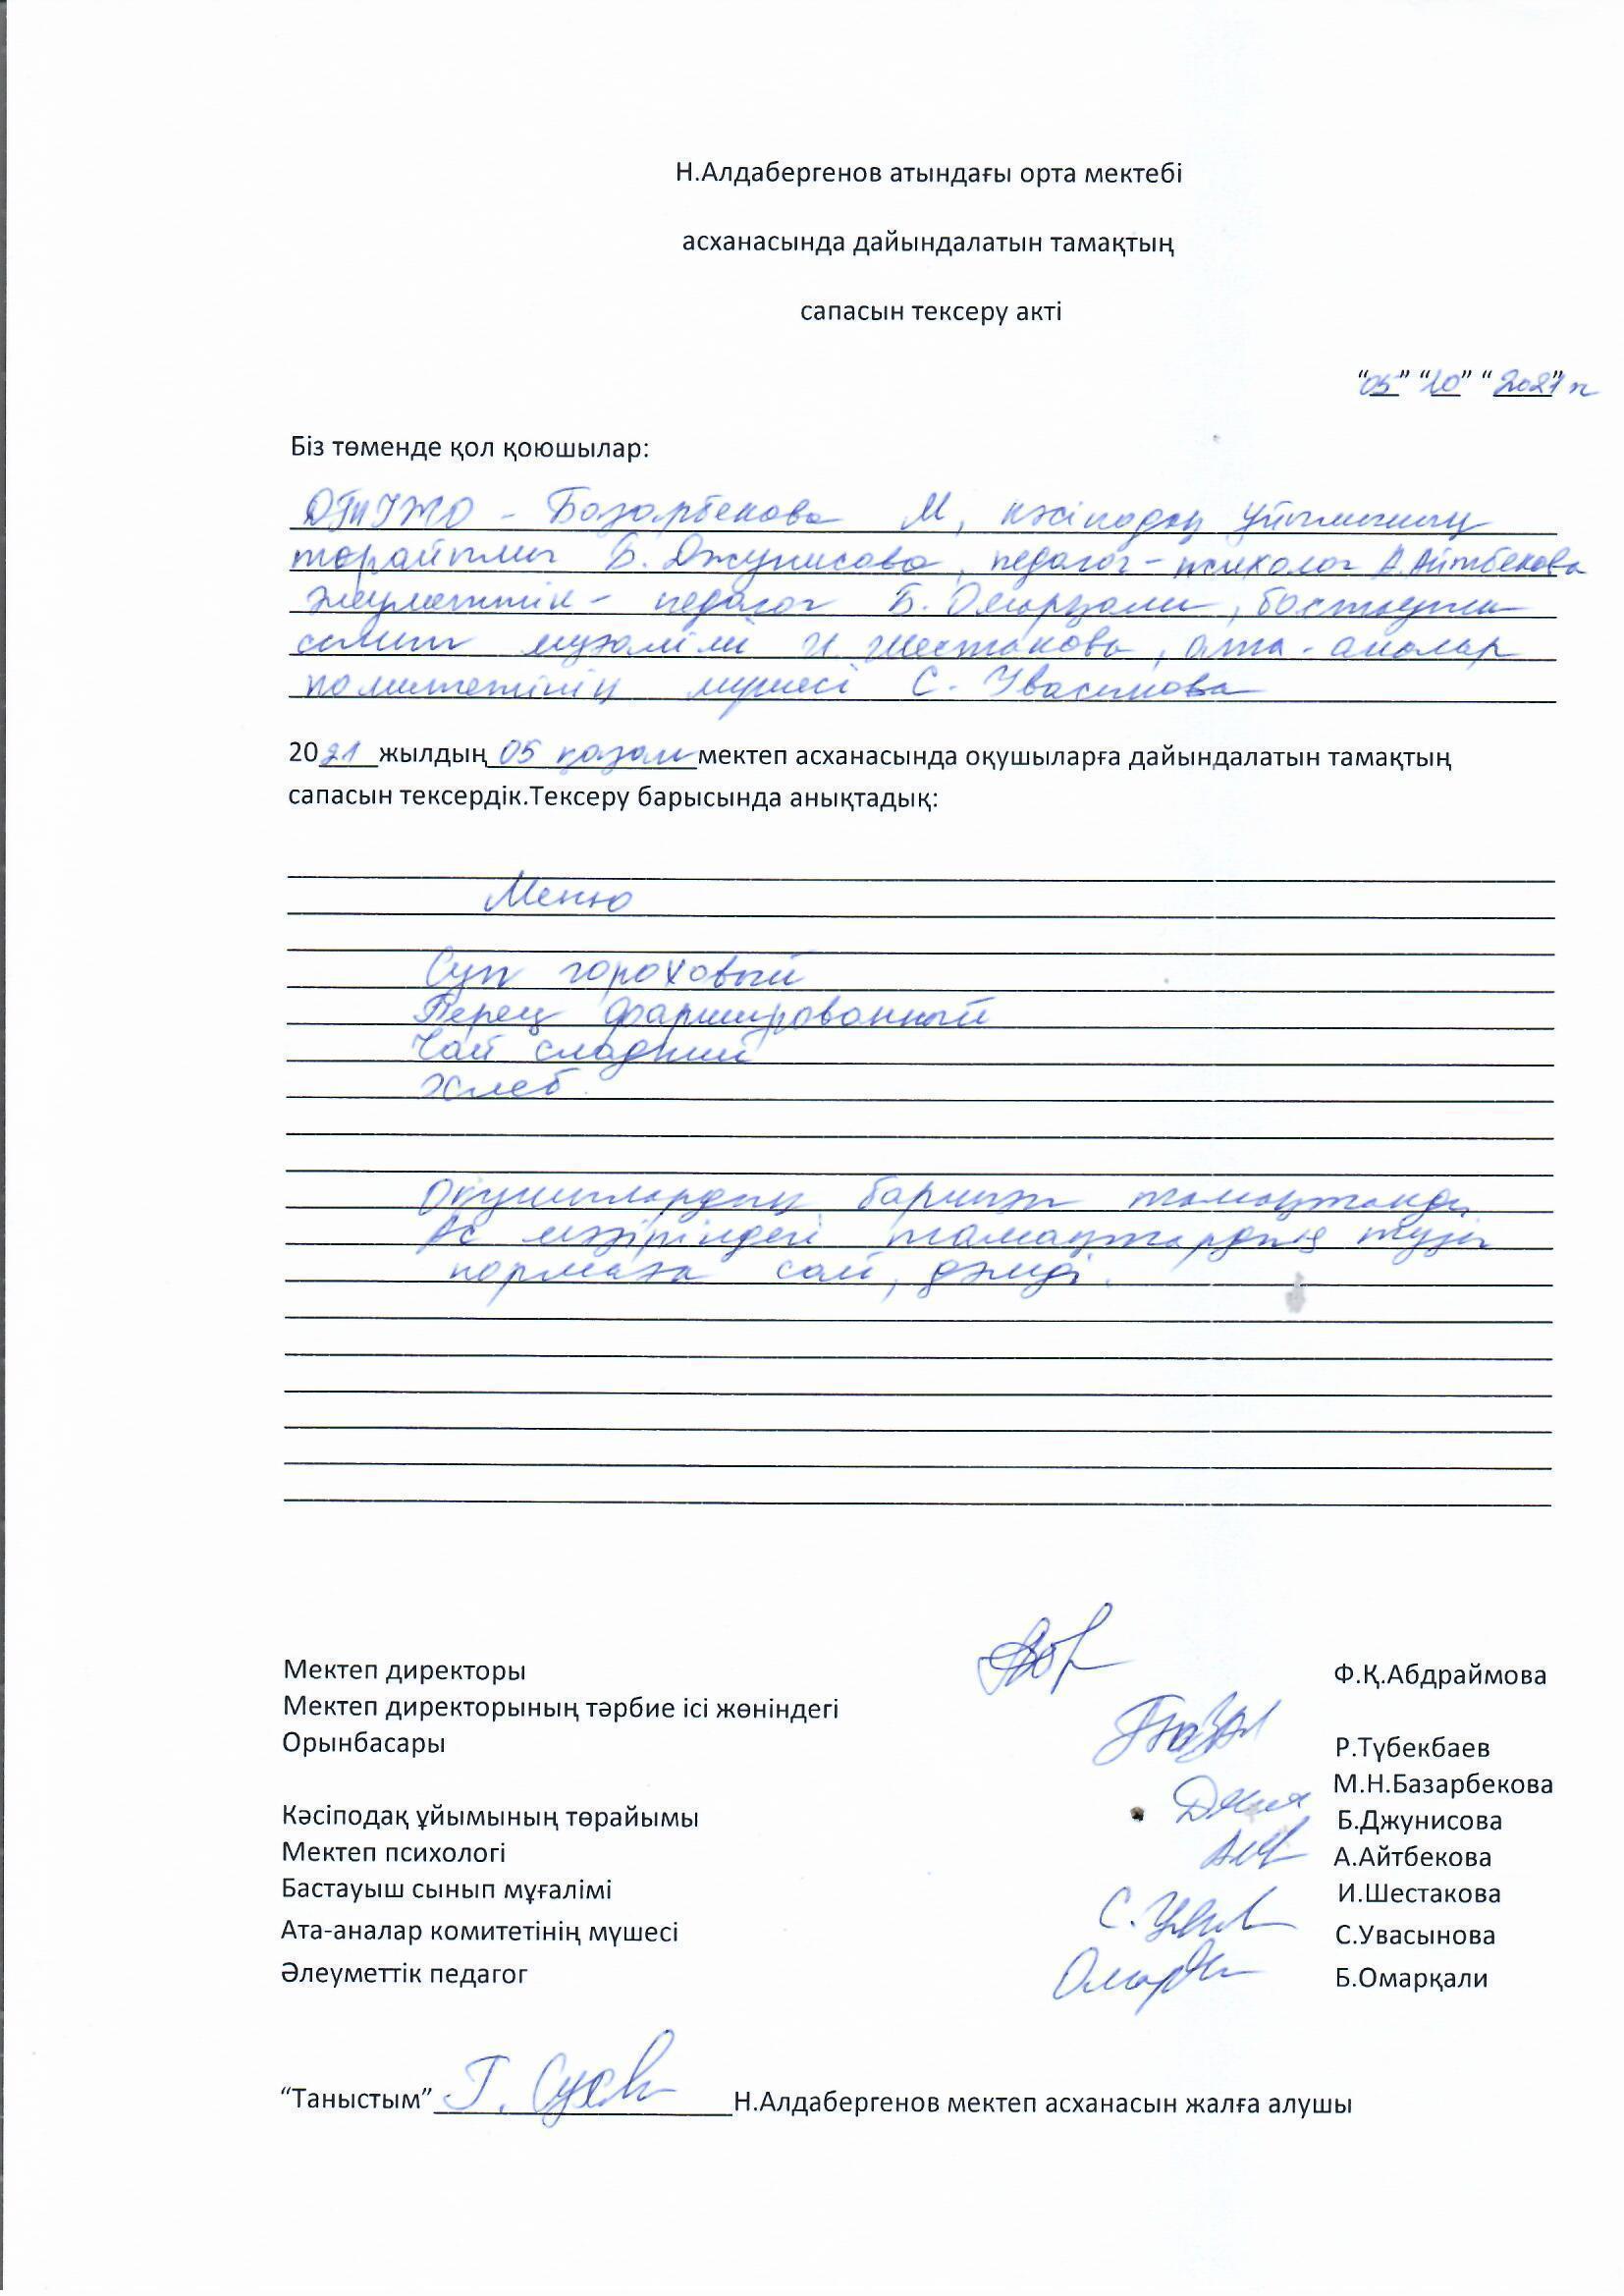 Н.Алдабергенов атындағы орта мектебі
асханасында дайындалатын тамақтың
сапасын тексеру акті
“05” “10” “2021”
Біз төменде қол қоюшылар:
Базарбекова М, кәсіподақ ұйымының
төрайымы Б. Джунисова, педагог-психолог А.Айтбекова
Әлеуметтік- педагог Б. Омарқали, бастауыш
сынып мұғалімі И. Шестакова, ата-аналар
комитетінің мүшесі С. Увасынова
2021 жылдың 05 қазан мектеп асханасында оқушыларға дайындалатын тамақтың
сапасын тексердік.Тексеру барысында анықтадық:
Меню
Суп гороховый
Перец фаршированный
Чай сладкий
Хлеб.
Оқушылардың барлығы тамақтанды
Ас мәзіріндегі тамақтардың түзі
нормаға сай, дәмді.
Мектеп директоры Ф.Қ.Абдраймова
Мектеп директорының тәрбие ісі жөніндегі
Орынбасары Р.Түбекбаев
М.Н.Базарбекова
Кәсіподақ ұйымының төрайымы Б.Джунисова
Мектеп психологі А.Айтбекова
Бастауыш сынып мұғалімі И.Шестакова
Ата-аналар комитетінің мүшесі С.Увасынова
Әлеуметтік педагог Б.Омарқали
“Таныстым” Н.Алдабергенов мектеп асханасын жалға алушы